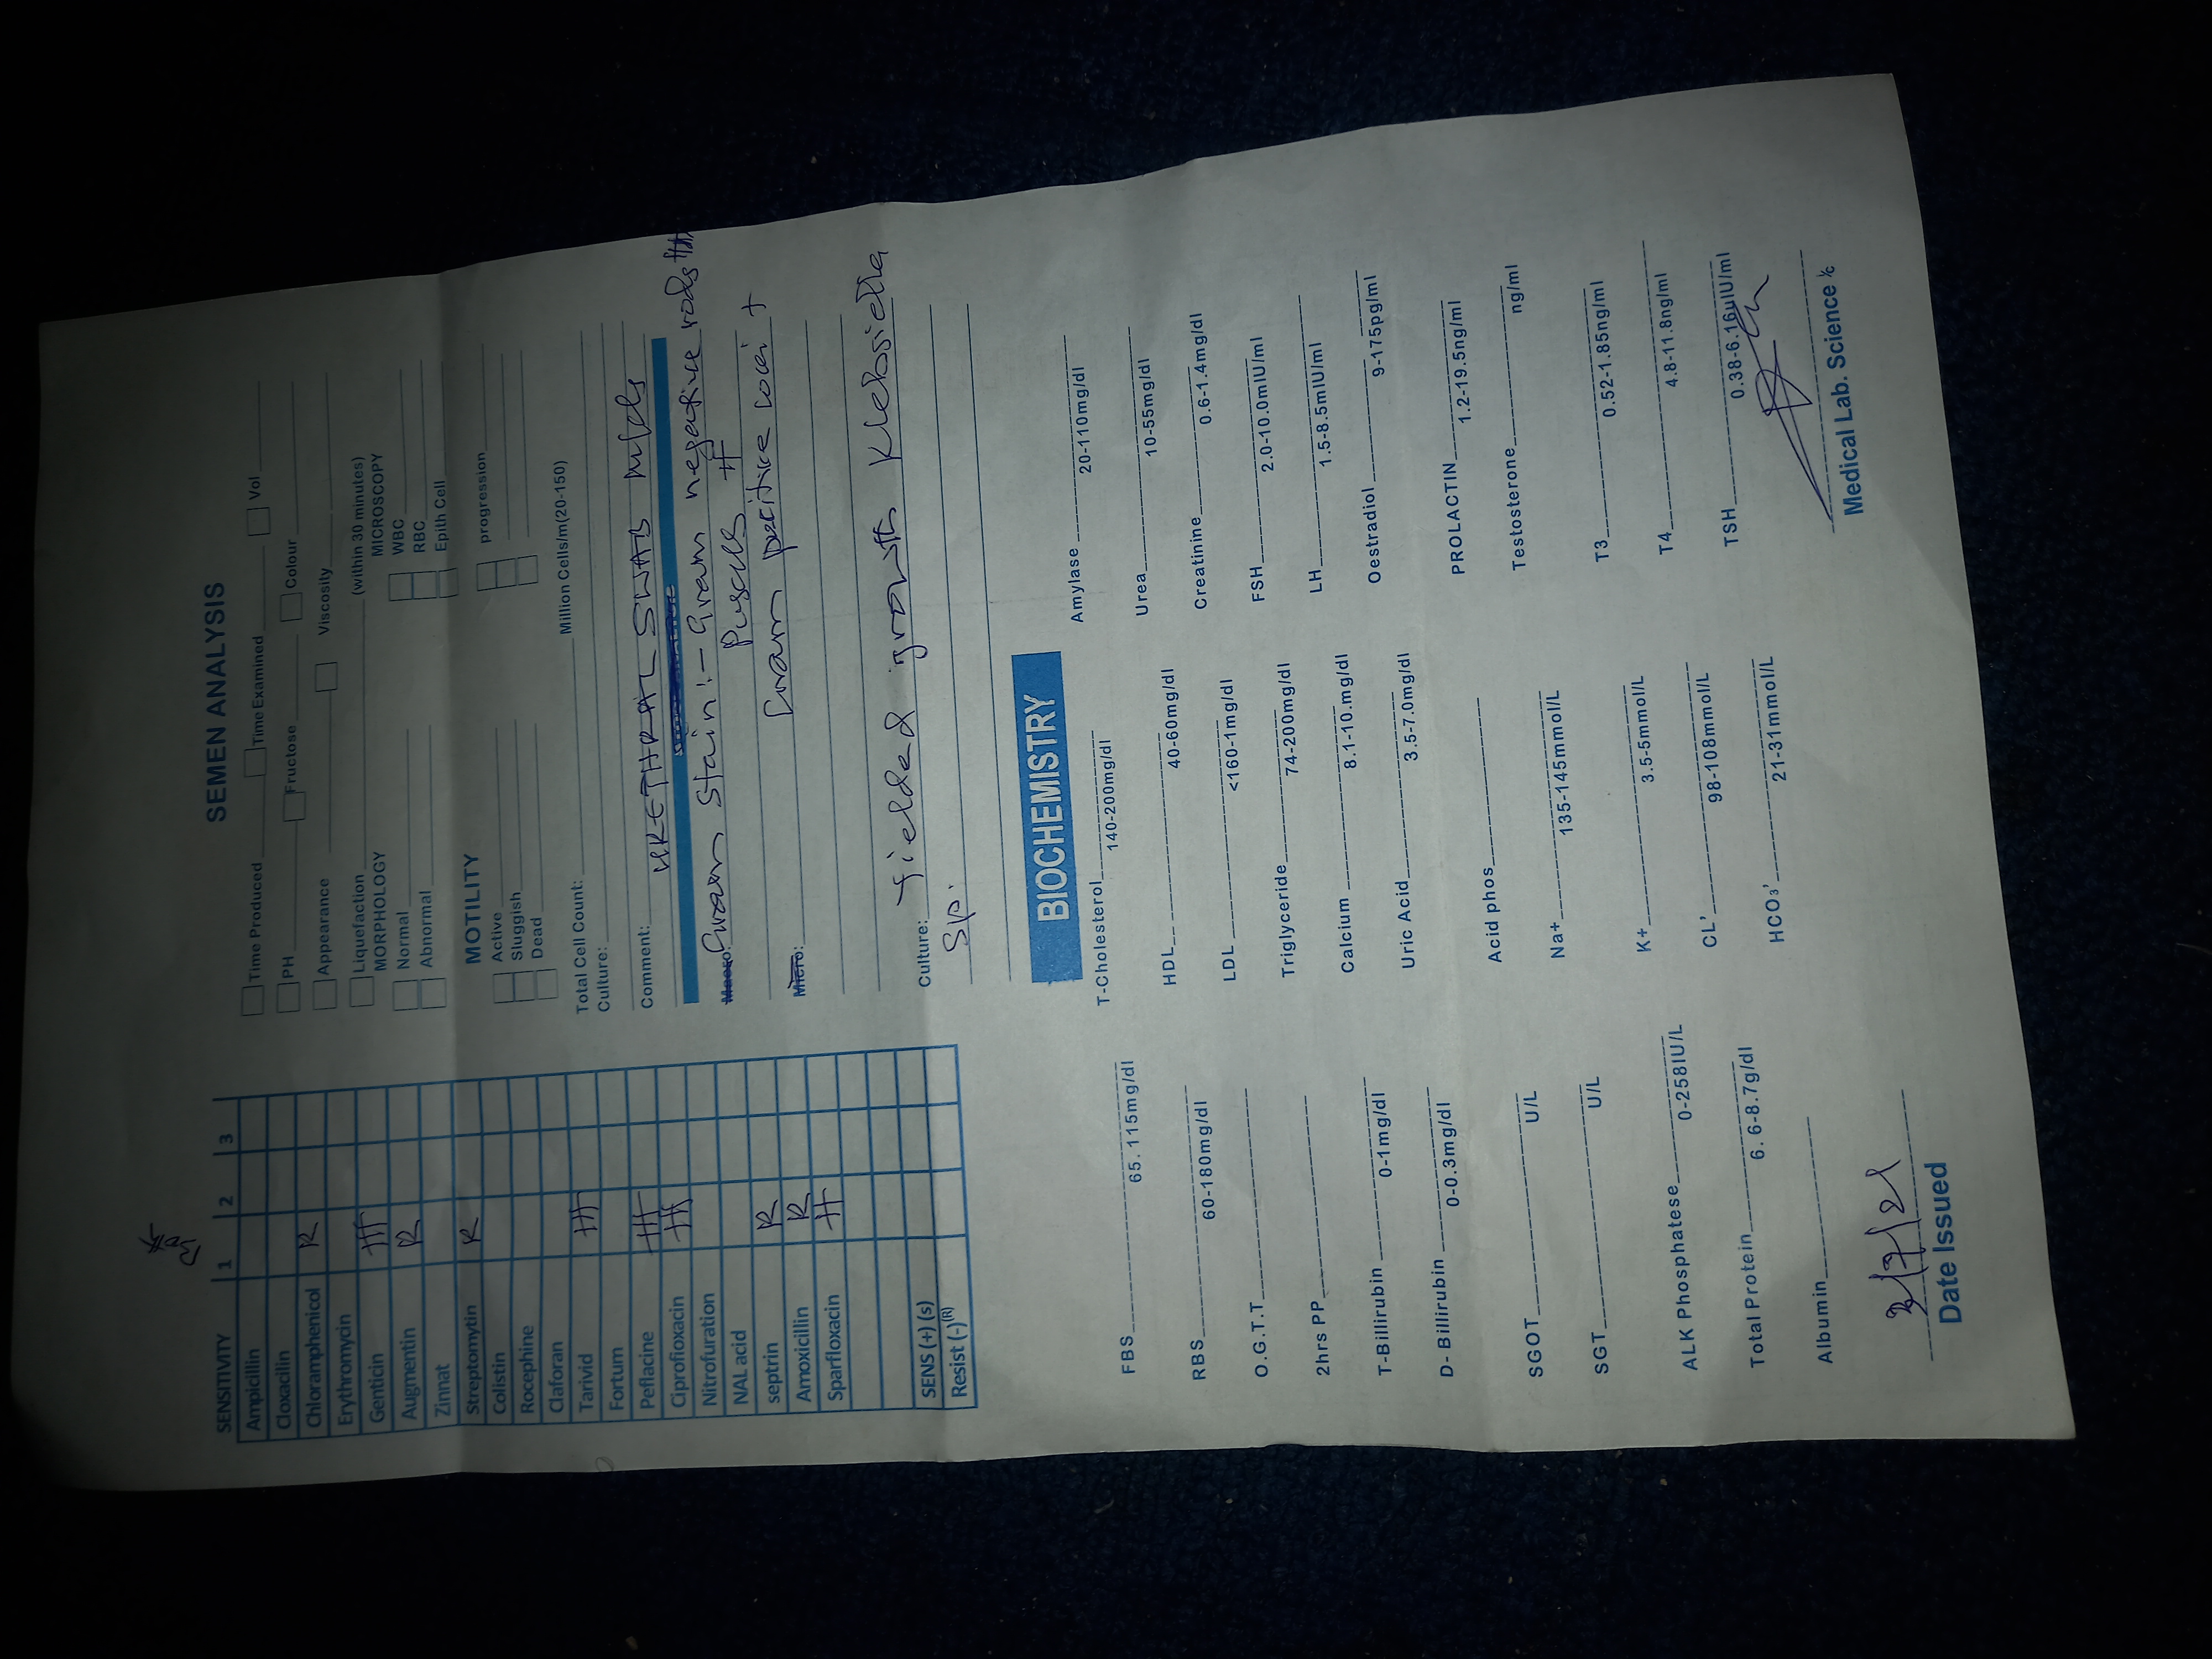 SENSITIVITY 1 2 3
Ampicillin
Cloxacillin
Chloramphenicol R
Erythromycin
Genticin +++
Augmentin R
Zinnat
Streptomytin R
Colistin
Rocephine
Claforan
Tarivid +++
Fortum
Peflacine +++
Ciprofioxacin ++
Nitrofuration
NAL acid
septrin R
Amoxicillin R
Sparfloxacin ++
SENS (+) (s)
Resist (-)(R)
SEMEN ANALYSIS
Time Produced Time Examined Vol
PH Fructose Colour
Appearance Viscosity
Liquefaction (within 30 minutes)
MORPHOLOGY MICROSCOPY
Normal WBC
Abnormal RBC
Epith Cell
MOTILITY
Active progression
Sluggish
Dead
Total Cell Count: Million Cells/m(20-150)
Culture:
Comment: URETHRAL SWAB M/C/S
Gram Stain:- Gram negative rods
Puscells ++
Micro: Gram positive cocci +
Culture: Yielded growth Klebsiella
Sp.
BIOCHEMISTRY
FBS 65.115mg/dl
RBS 60-180mg/dl
O.G.T.T
2hrs PP
T-Billirubin 0-1mg/dl
D- Billirubin 0-0.3mg/dl
SGOT U/L
SGT U/L
ALK Phosphatese 0-258IU/L
Total Protein 6. 6-8.7g/dl
Albumin
T-Cholesterol 140-200mg/dl
HDL 40-60mg/dl
LDL <160-1mg/dl
Triglyceride 74-200mg/dl
Calcium 8.1-10.mg/dl
Uric Acid 3.5-7.0mg/dl
Acid phos
Na+ 135-145mmol/L
K+ 3.5-5mmol/L
CL' 98-108mmol/L
HCO₃' 21-31mmol/L
Amylase 20-110mg/dl
Urea 10-55mg/dl
Creatinine 0.6-1.4mg/dl
FSH 2.0-10.0mIU/ml
LH 1.5-8.5mIU/ml
Oestradiol 9-175pg/ml
PROLACTIN 1.2-19.5ng/ml
Testosterone ng/ml
T3 0.52-1.85ng/ml
T4 4.8-11.8ng/ml
TSH 0.38-6.16uIU/ml
Date Issued
Medical Lab. Science ⅟c